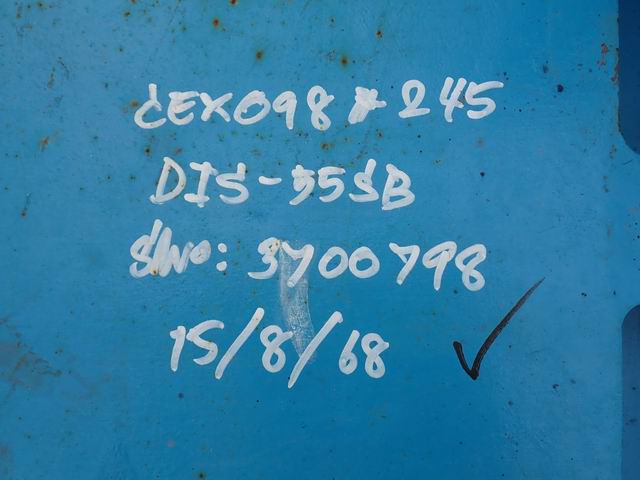 CEX098 * 245
DIS-35SB
S/No: 3700798
15/8/68